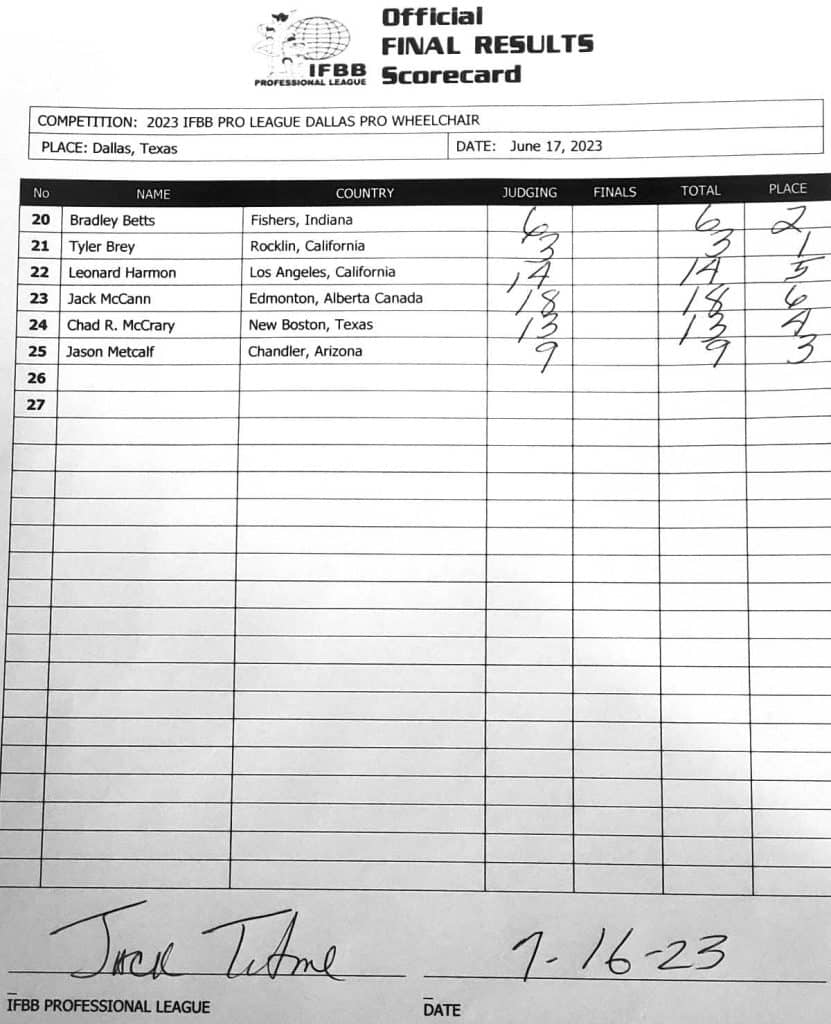 Official
FINAL RESULTS
Scorecard
IFBB
PROFESSIONAL LEAGUE
COMPETITION: 2023 IFBB PRO LEAGUE DALLAS PRO WHEELCHAIR
PLACE: Dallas, Texas DATE: June 17, 2023
No NAME COUNTRY JUDGING FINALS TOTAL PLACE
20 Bradley Betts Fishers, Indiana 6 6 2
21 Tyler Brey Rocklin, California 3 3 1
22 Leonard Harmon Los Angeles, California 14 14 5
23 Jack McCann Edmonton, Alberta Canada 18 18 6
24 Chad R. McCrary New Boston, Texas 13 13 4
25 Jason Metcalf Chandler, Arizona 9 9 3
26
27
Jack 7-16-23
IFBB PROFESSIONAL LEAGUE DATE